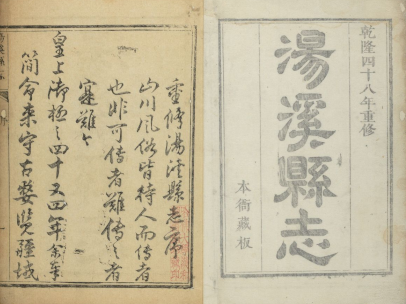 乾隆四十八年重修
湯溪縣志
本衙藏板
重修湯溪縣志序
山川風俗皆待人而傳者
也非可傳者難傳之者
寔難々
皇上御極之四十又四年余奉
簡命来守古婺覽疆域